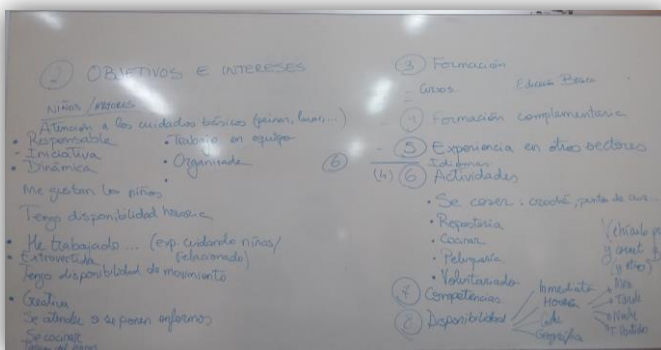 2 OBJETIVOS E INTERESES
NIÑOS / MAYORES
Atención a los cuidados básicos (peinar, lavar, ...)
• Responsable • Trabajo en equipo
- Iniciativa • Organizada
• Dinámica •
Me gustan los niños
Tengo disponibilidad horaria
• He trabajado ... (exp. cuidando niños/
relacionado)
• Extrovertida
Tengo disponibilidad de movimiento
• Creativa
Se atender si se ponen enfermos
Se cocinar
3 Formación
- Cursos Educación Básica
- 4 Formación complementaria
- 5 Experiencia en otros sectores
6 Idiomas
(4) 6 Actividades
• Se coser: croché, punto de
• Repostería
• Cocinar
• Peluquería
• Voluntariado
Vehículo
y carnet
(y otro)
7 Competencias
8 Disponibilidad
Inmediata
Horaria
Geográfica
Tarde
Noche